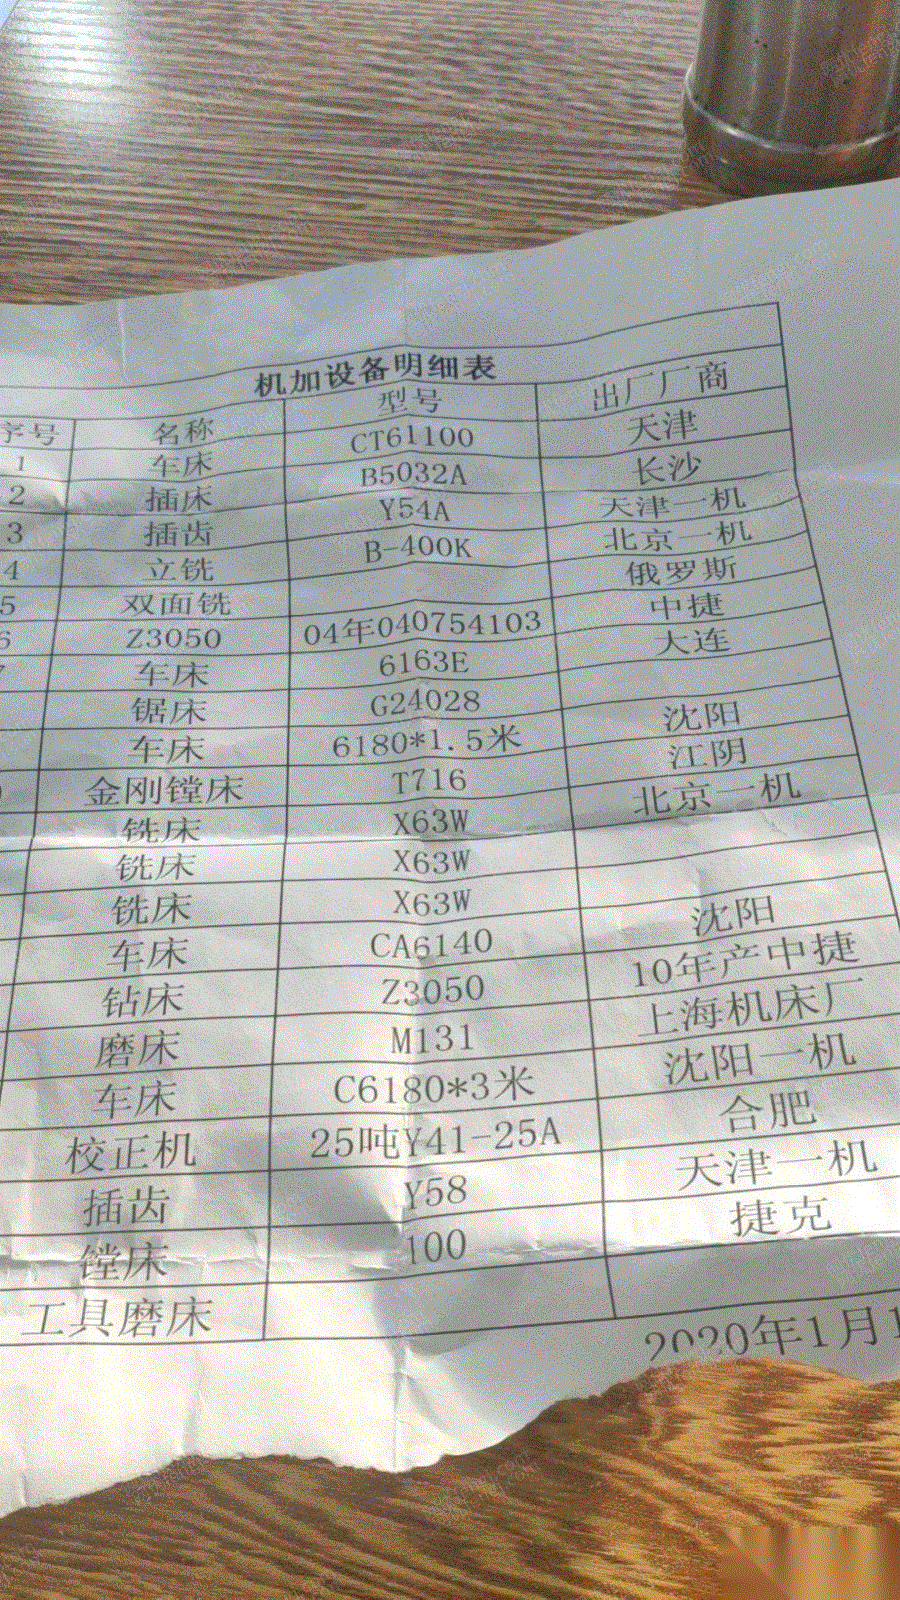 机加设备明细表
序号 名称 型号 出厂厂商
1 车床 CT61100 天津
2 插床 B5032A 长沙
3 插齿 Y54A 天津一机
4 立铣 B-400K 北京一机
5 双面铣 俄罗斯
6 Z3050 04年040754103 中捷
车床 6163E 大连
锯床 G24028
车床 6180*1.5米 沈阳
金刚镗床 T716 江阴
铣床 X63W 北京一机
铣床 X63W
铣床 X63W
车床 CA6140 沈阳
钻床 Z3050 10年产中捷
磨床 M131 上海机床厂
车床 C6180*3米 沈阳一机
校正机 25吨Y41-25A 合肥
插齿 Y58 天津一机
镗床 100 捷克
工具磨床
2020年1月1